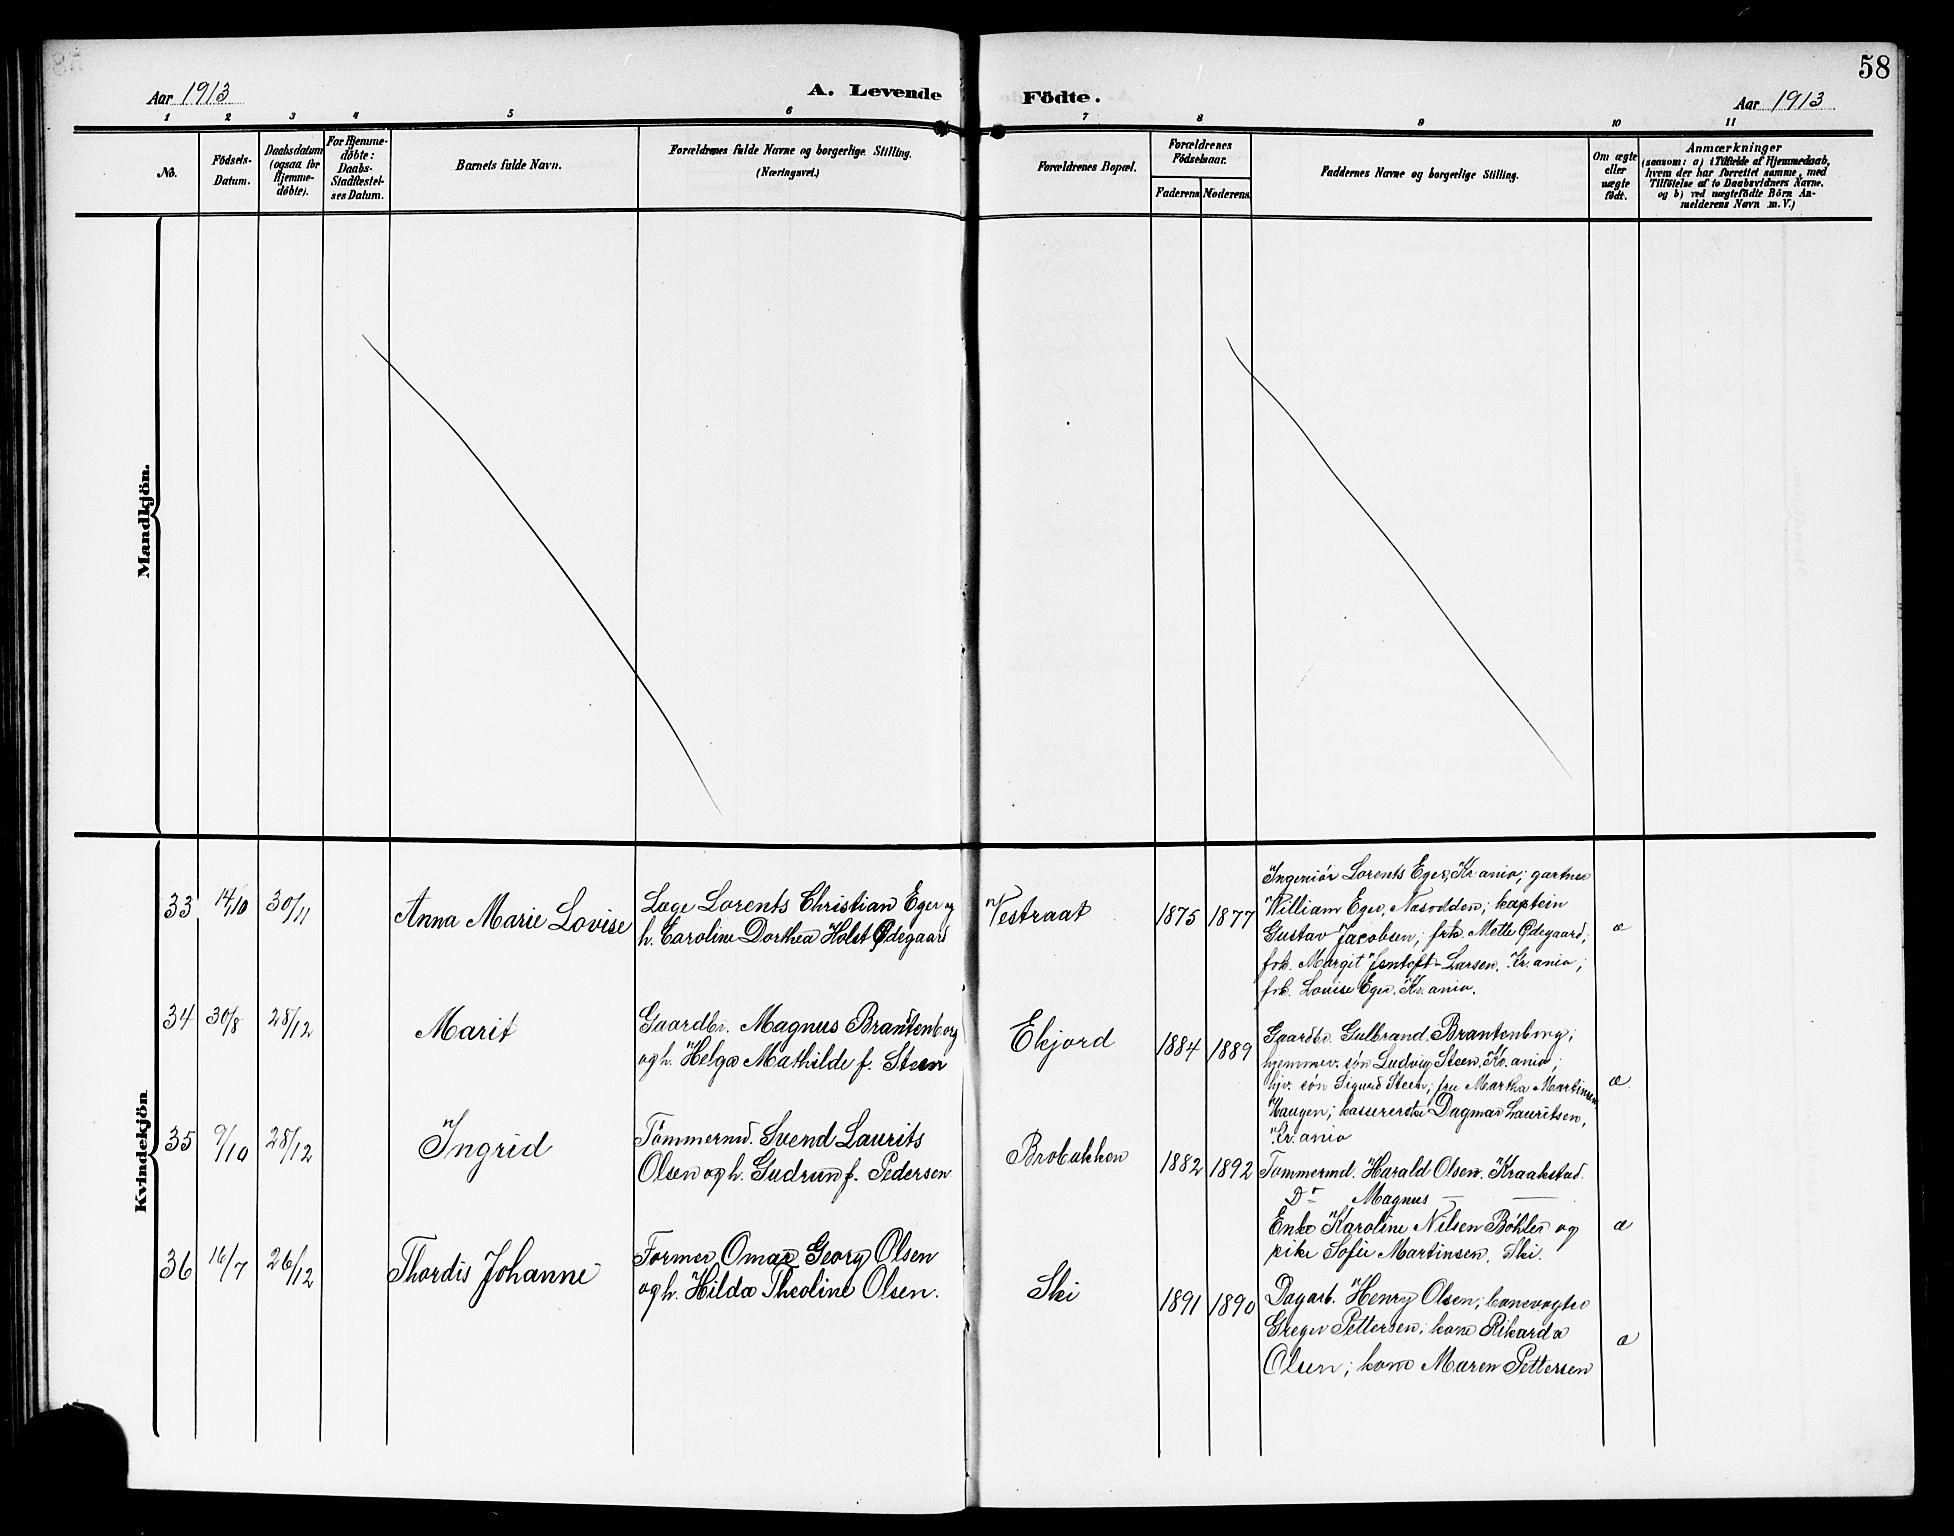 58
Aar 1913
A. Levende
Födte.
Aar 1913
1 2 3 4 5 6 7 8 9 10 11
No.
Födsels-
Datum.
Daabsdatum
(ogsaa for
Hjemme-
döbte).
For Hjemme-
döbte:
Daabs-
Stadfæstel-
ses Datum.
Barnets fulde Navn.
Forældrenes fulde Navne og borgerlige Stilling.
(Næringsvei.)
Forældrenes Bopæl.
Forældrenes
Födselsaar.
Faderens. Moderens.
Faddernes Navne og borgerlige Stilling.
Om ægte
eller
uægte
födt.
Anmærkninger
(saasom: a) i Tilfælde af Hjemmedaab,
hvem der har forrettet samme, med
Tilföielse af to Daabsvidners Navne,
og b) ved uægtefödte Börn An-
melderens Navn m. V.)
Mandkjön.
Kvindekjön
33 14/10 30/11
Anna Marie Lovise
Lage Lorents Christian Eger og
h. Caroline Dorthea Holst Ødegaard
Vestraat
1875 1877
Ingeniör Lorents Eger, Kr.ania; gartner
William Eger, Nesodden; kaptein
Gustav Jacobsen; frk. Mette Ødegaard;
frk. Margit Jentoft-Larsen, Kr.ania;
frk. Louise Eger, Kr.ania.
æ
34 30/8 28/12
Marit
Gaardbr. Magnus Brantenborg
og h. Helga Mathilde f. Steen
Ekjord
1884 1889
Gaardbr. Gulbrand Brantenborg;
hjemmev. søn Ludvig Steen, Kr.ania;
hjv. søn Sigurd Steen; fru Martha Martinsen
Haugen; kassererske Dagmar Lauritsen,
Kr.ania
æ
35 9/10 28/12
Ingrid
Tömmermd. Svend Laurits
Olsen og h. Gudrun f. Pedersen
Brobakken
1882 1892
Tømmermd. Harald Olsen, Kraakstad.
Do Magnus — —
Enke Karoline Nilsen Bøhler og
pike Sofie Martinsen, Ski.
æ
36 16/7 26/12
Thordis Johanne
Former Omar Georg Olsen
og h. Hilda Theoline Olsen.
Ski
1891 1890
Dagarb. Henry Olsen; banevogter
Greger Pettersen; kone Rikarda
Olsen; kone Maren Pettersen
æ